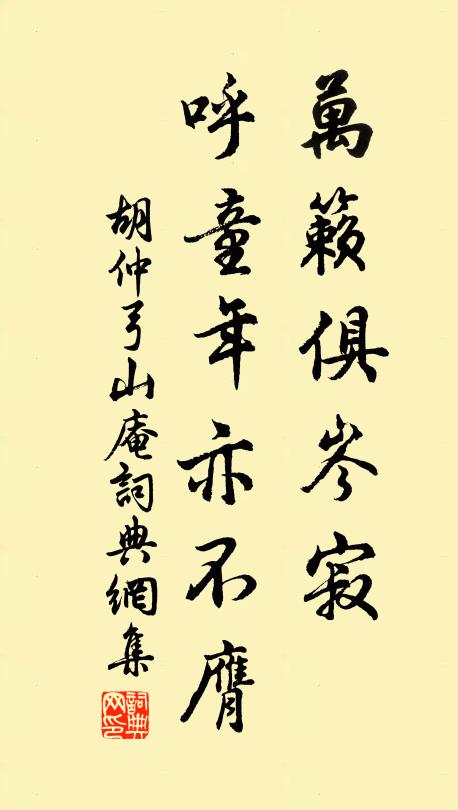 萬籟俱岑寂
呼童年亦不膺
胡仲弓山庵詞典網集
詞典網印